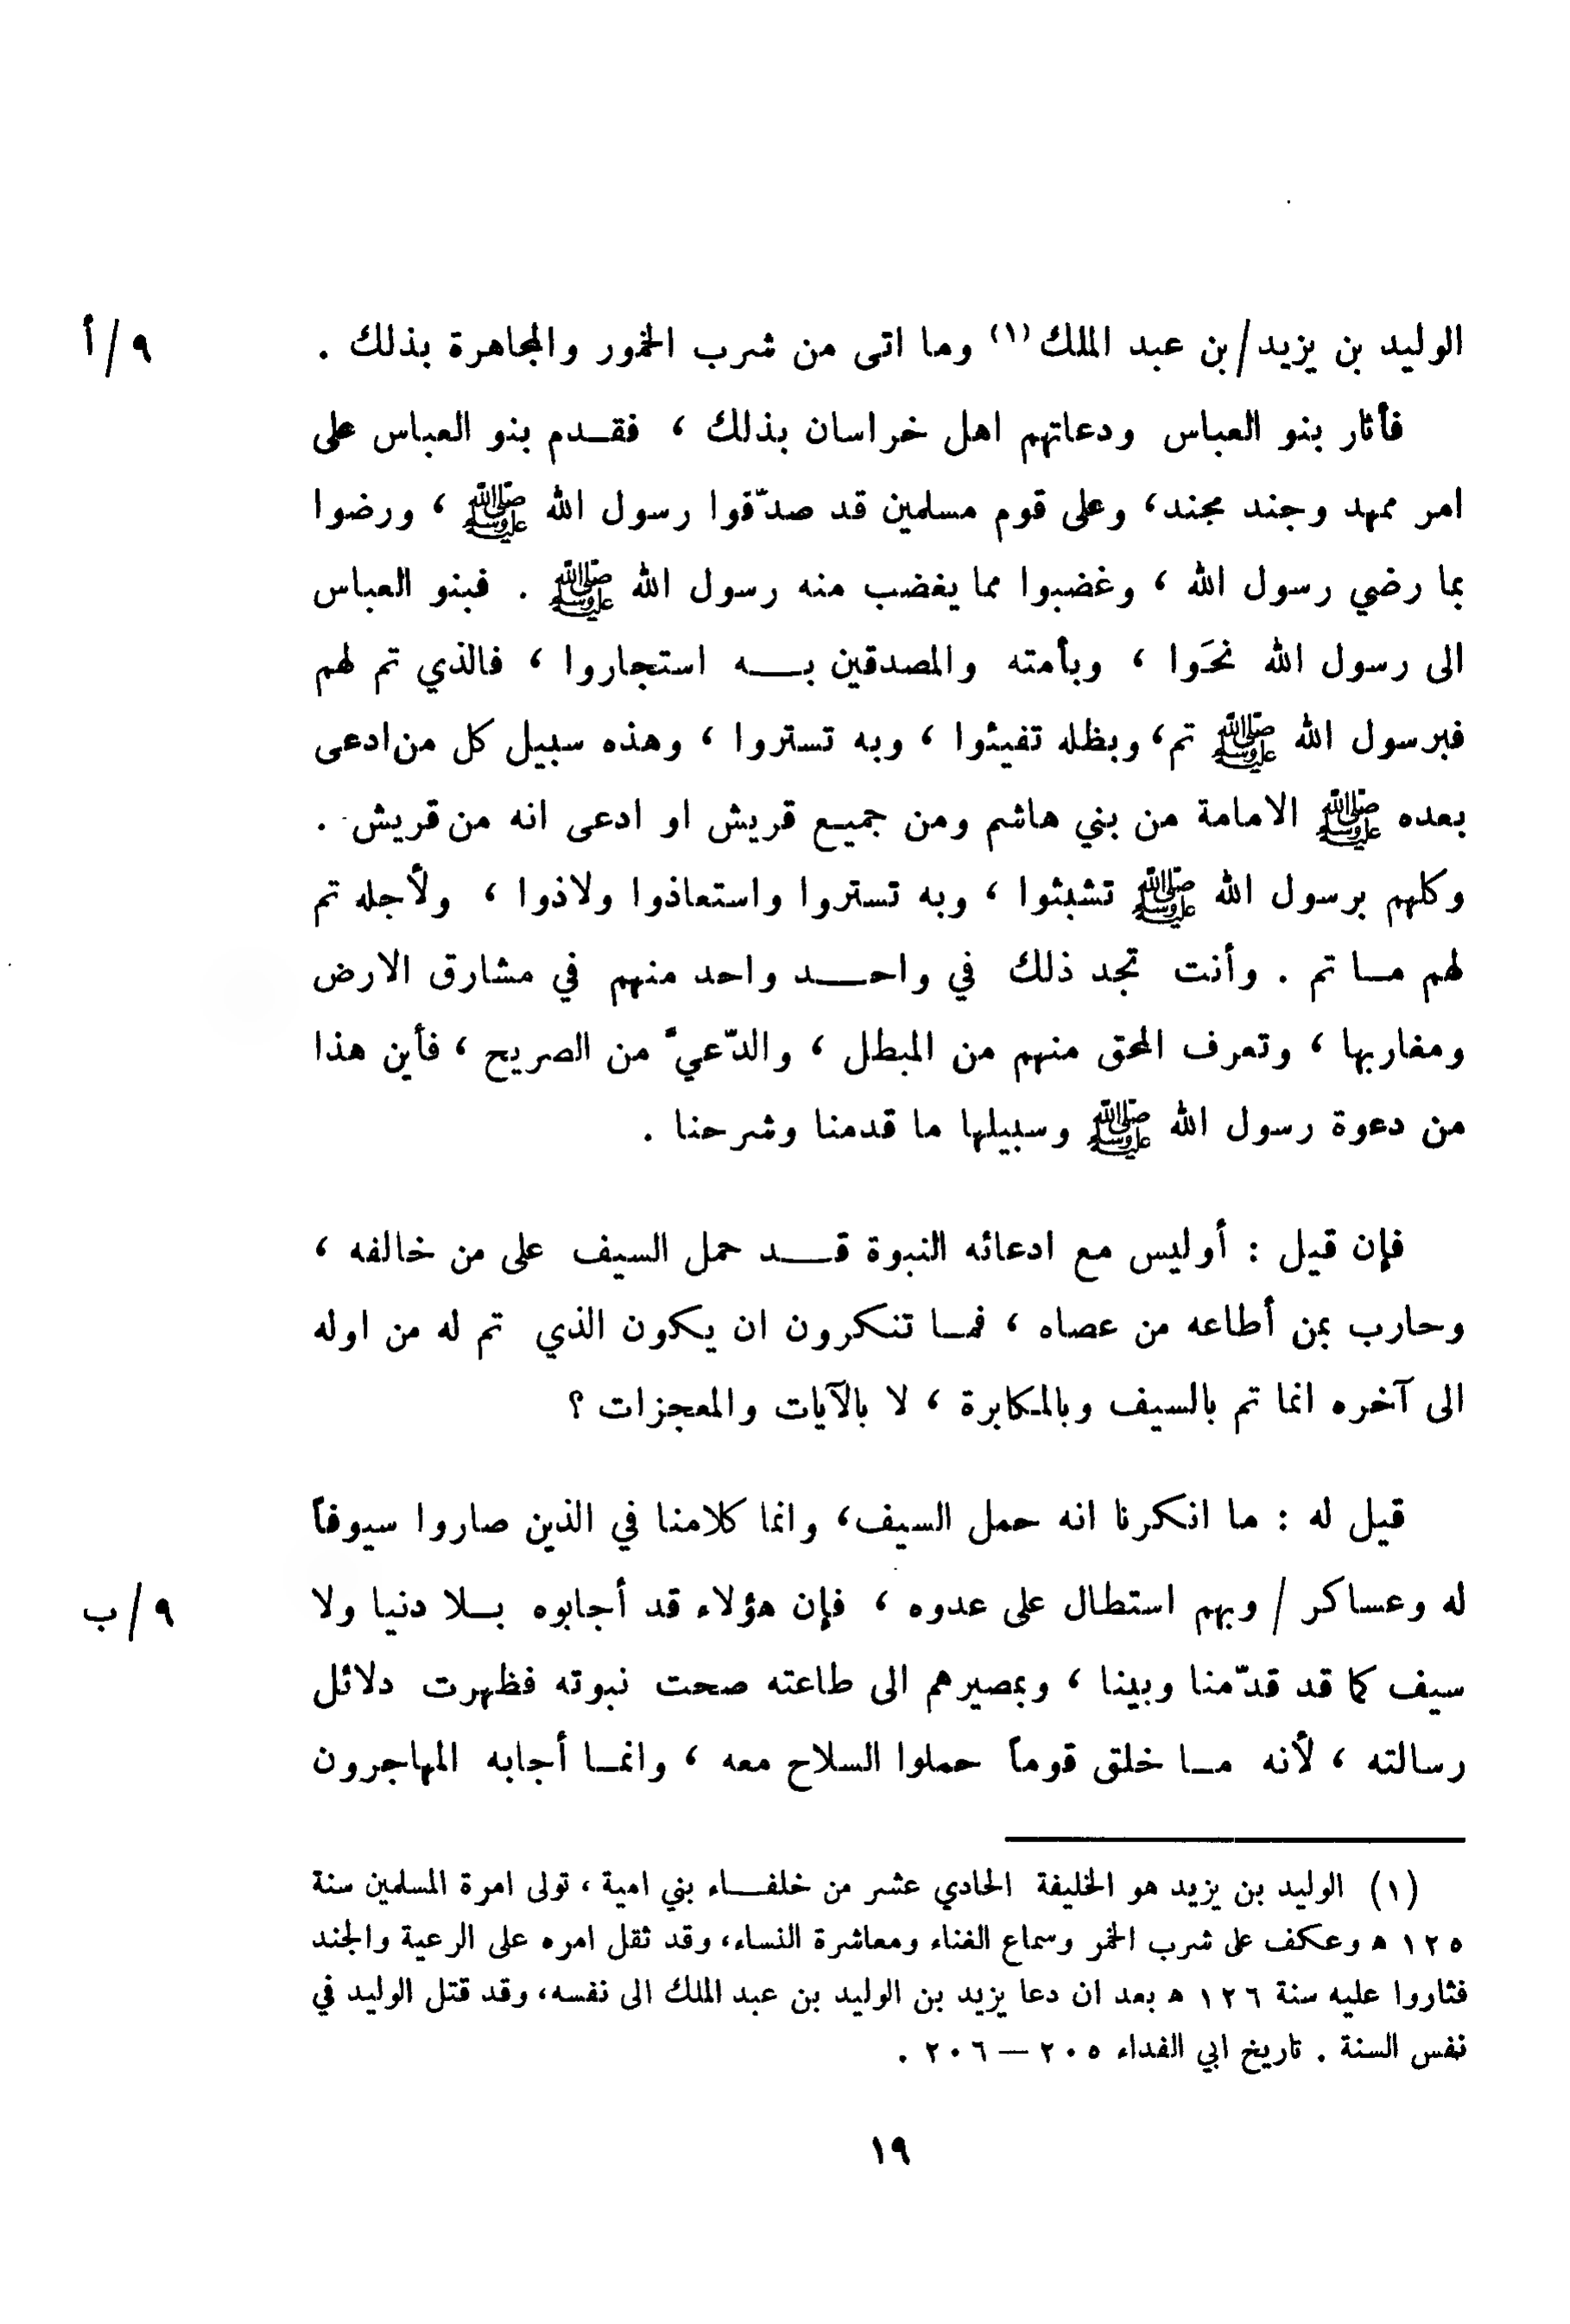 الوليد بن يزيد/بن عبد الملك (١) وما اتى من شرب الخمور والمجاهرة بذلك .
٩/أ
فأثار بنو العباس ودعاتهم اهل خراسان بذلك ، فقـدم بنو العباس على
امر ممهد وجند مجند، وعلى قوم مسلمين قد صدّقوا رسول الله ﷺ ، ورضوا
بما رضي رسول الله ، وغضبوا مما يغضب منه رسول الله ﷺ . فبنو العباس
الى رسول الله نحَوا ، وبأمته والمصدقين بــه استجاروا ، فالذي تم لهم
فبرسول الله ﷺ تم، وبظله تفيئوا ، وبه تستروا ، وهذه سبيل كل من ادعى
بعده ﷺ الامامة من بني هاشم ومن جميـع قريش او ادعى انه من قريش .
وكلهم برسول الله ﷺ تشبثوا ، وبه تستروا واستعاذوا ولاذوا ، ولأجله تم
لهم مـا تم . وأنت تجد ذلك في واحــد واحد منهم في مشارق الارض
ومغاربها ، وتعرف المحق منهم من المبطل ، والدّعيّ من الصريح ، فأين هذا
من دعوة رسول الله ﷺ وسبيلها ما قدمنا وشرحنا .
فإن قيل : أوليس مع ادعائه النبوة قــد حمل السيف على من خالفه ،
وحارب بمن أطاعه من عصاه ، فمـا تنكرون ان يكون الذي تم له من اوله
الى آخره انما تم بالسيف وبالمكابرة ، لا بالآيات والمعجزات ؟
قيل له : ما انكرنا انه حمل السيف، وانما كلامنا في الذين صاروا سيوفاً
له وعساكر / وبهم استطال على عدوه ، فإن هؤلاء قد أجابوه بـلا دنيا ولا
٩/ب
سيف كما قد قدّمنا وبينا ، وبمصيرهم الى طاعته صحت نبوته فظهرت دلائل
رسالته ، لأنه مـا خلق قوماً حملوا السلاح معه ، وانمـا أجابه المهاجرون
(١) الوليد بن يزيد هو الخليفة الحادي عشر من خلفـاء بني امية ، تولى امرة المسلمين سنة
١٢٥ ه وعكف على شرب الخمر وسماع الغناء ومعاشرة النساء، وقد ثقل امره على الرعية والجند
فثاروا عليه سنة ١٢٦ ه بعد ان دعا يزيد بن الوليد بن عبد الملك الى نفسه، وقد قتل الوليد في
نفس السنة . تاريخ ابي الفداء ٢٠٥ – ٢٠٦ .
١٩